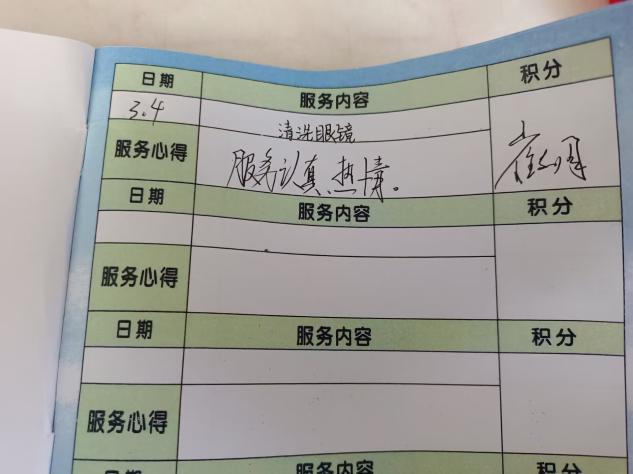 日期 服务内容 积分
3.4 清洗眼镜
服务心得 服务认真热情。
日期 服务内容 积分
服务心得
日期 服务内容 积分
服务心得
日期 服务内容 积分